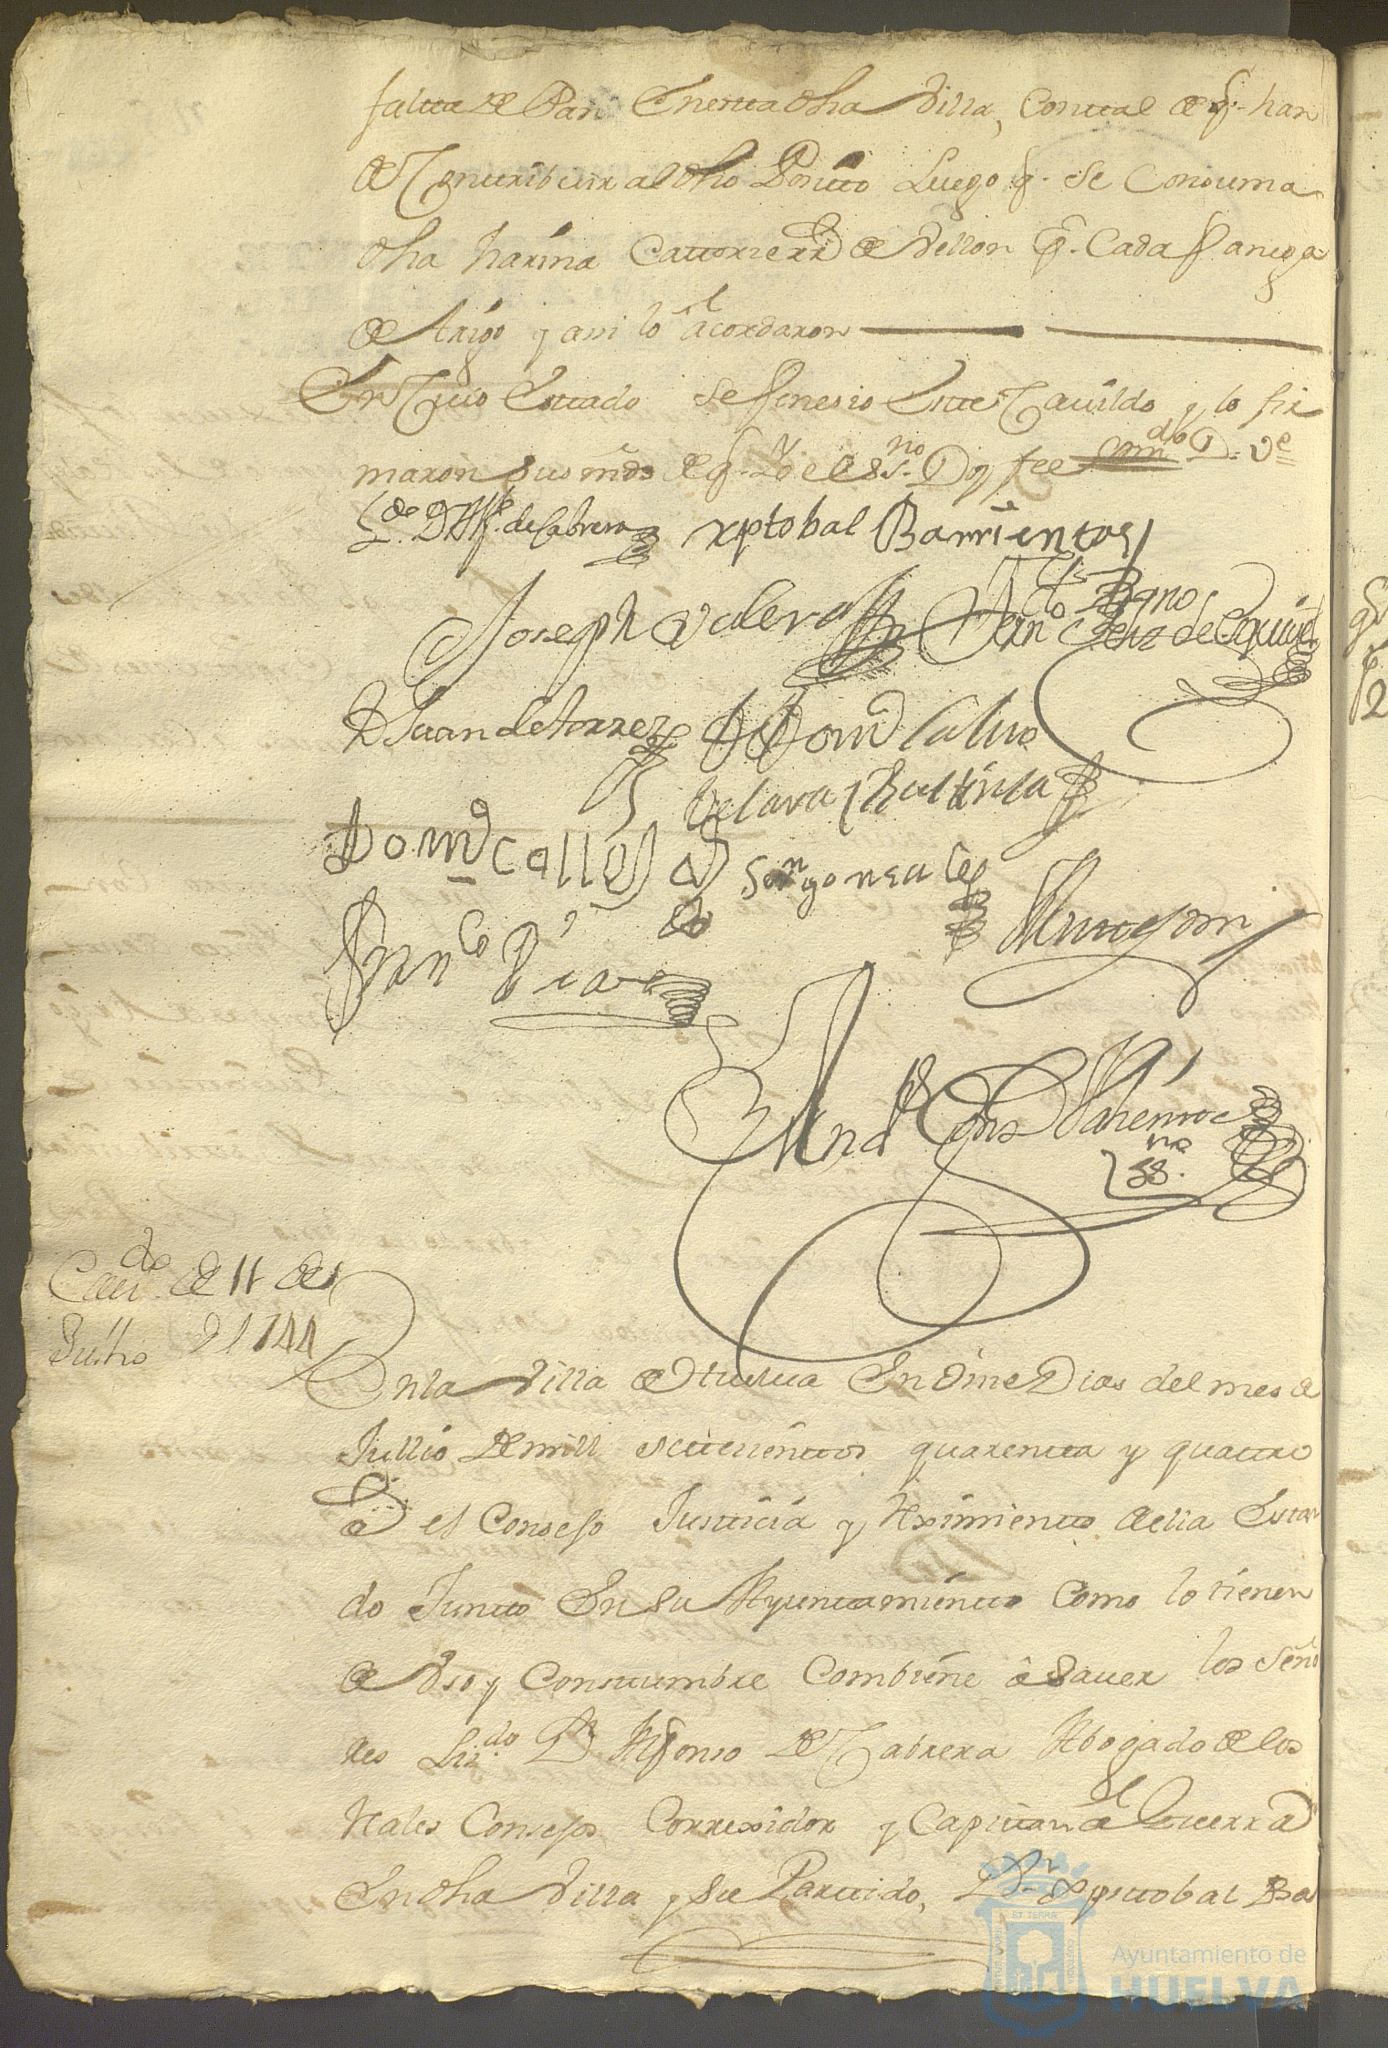 falta de Pan En esta dha Villa, Con cal de q.e han
de Contribuir al dho Posito Luego q.e se Consuma
dha harina Catorze rr.s de Vellon p.r Cada fanega
de trigo y assi lo acordaron
En Cuio Estado se fenesio Este Cavildo y lo fir
maron sus mrds de q.e Yo el ess.no Doy fee
L.do D.n Alf.o de Cabrera Xptobal Barrientos
Joseph Valero
D Juan de torres D Dom.o Calvo
de Lara y Bu
Dom.o Calles
Fran.co Dias
And.s
ss.no
Cav.do de 11 de
Jullio D 1744
En la Villa de Huelva En Onze Dias del mes de
Jullio de mill setezientos quarenta y quatro
a.s el Consejo Justicia y Reximiento della Estan
do Junto En su Ayuntamiento Como lo tienen
de Vso y Constumbre Combiene a saver los Seño
res Liz.do D.n Alfonso de Cabrera Abogado de los
Reales Consejos Correxidor y Capitan a Guerra
En dha Villa y su Partido, D.n Xptobal Ba
ET TERRA
Ayuntamiento de
HUELVA